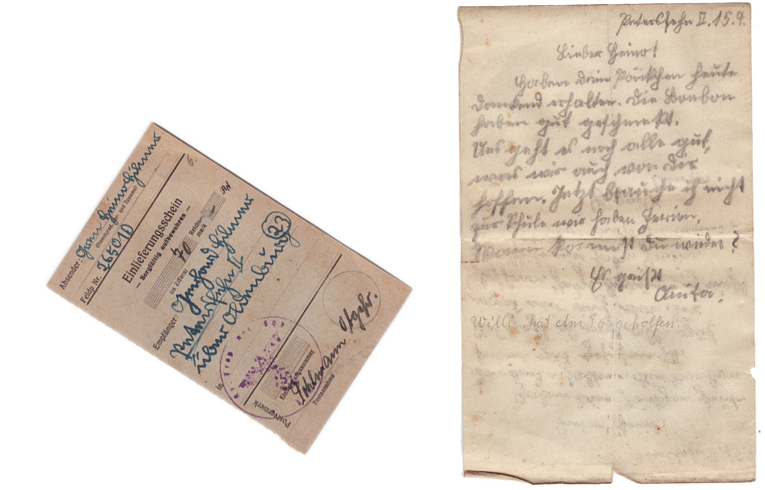 Absender:
Feldp. Nr. 26501D
Einlieferungsschein
Sorgfältig aufbewahren
70
in Ziffern
Empfänger:
Petersfehn II
über Oldenburg (23)
Postvermerk
Postannahme
Petersfehn II, 15.9.
Lieber Heino!
Haben dein Päckchen heute
dankend erhalten. Die Bonbon
haben gut geschmeckt.
Uns geht es noch alle gut,
was wir auch von dir
hoffen. Jetzt brauche ich nicht
zur Schule wir haben Ferien.
Wann kommst Du wieder?
Es grüßt
Anita.
Willi hat geholfen.